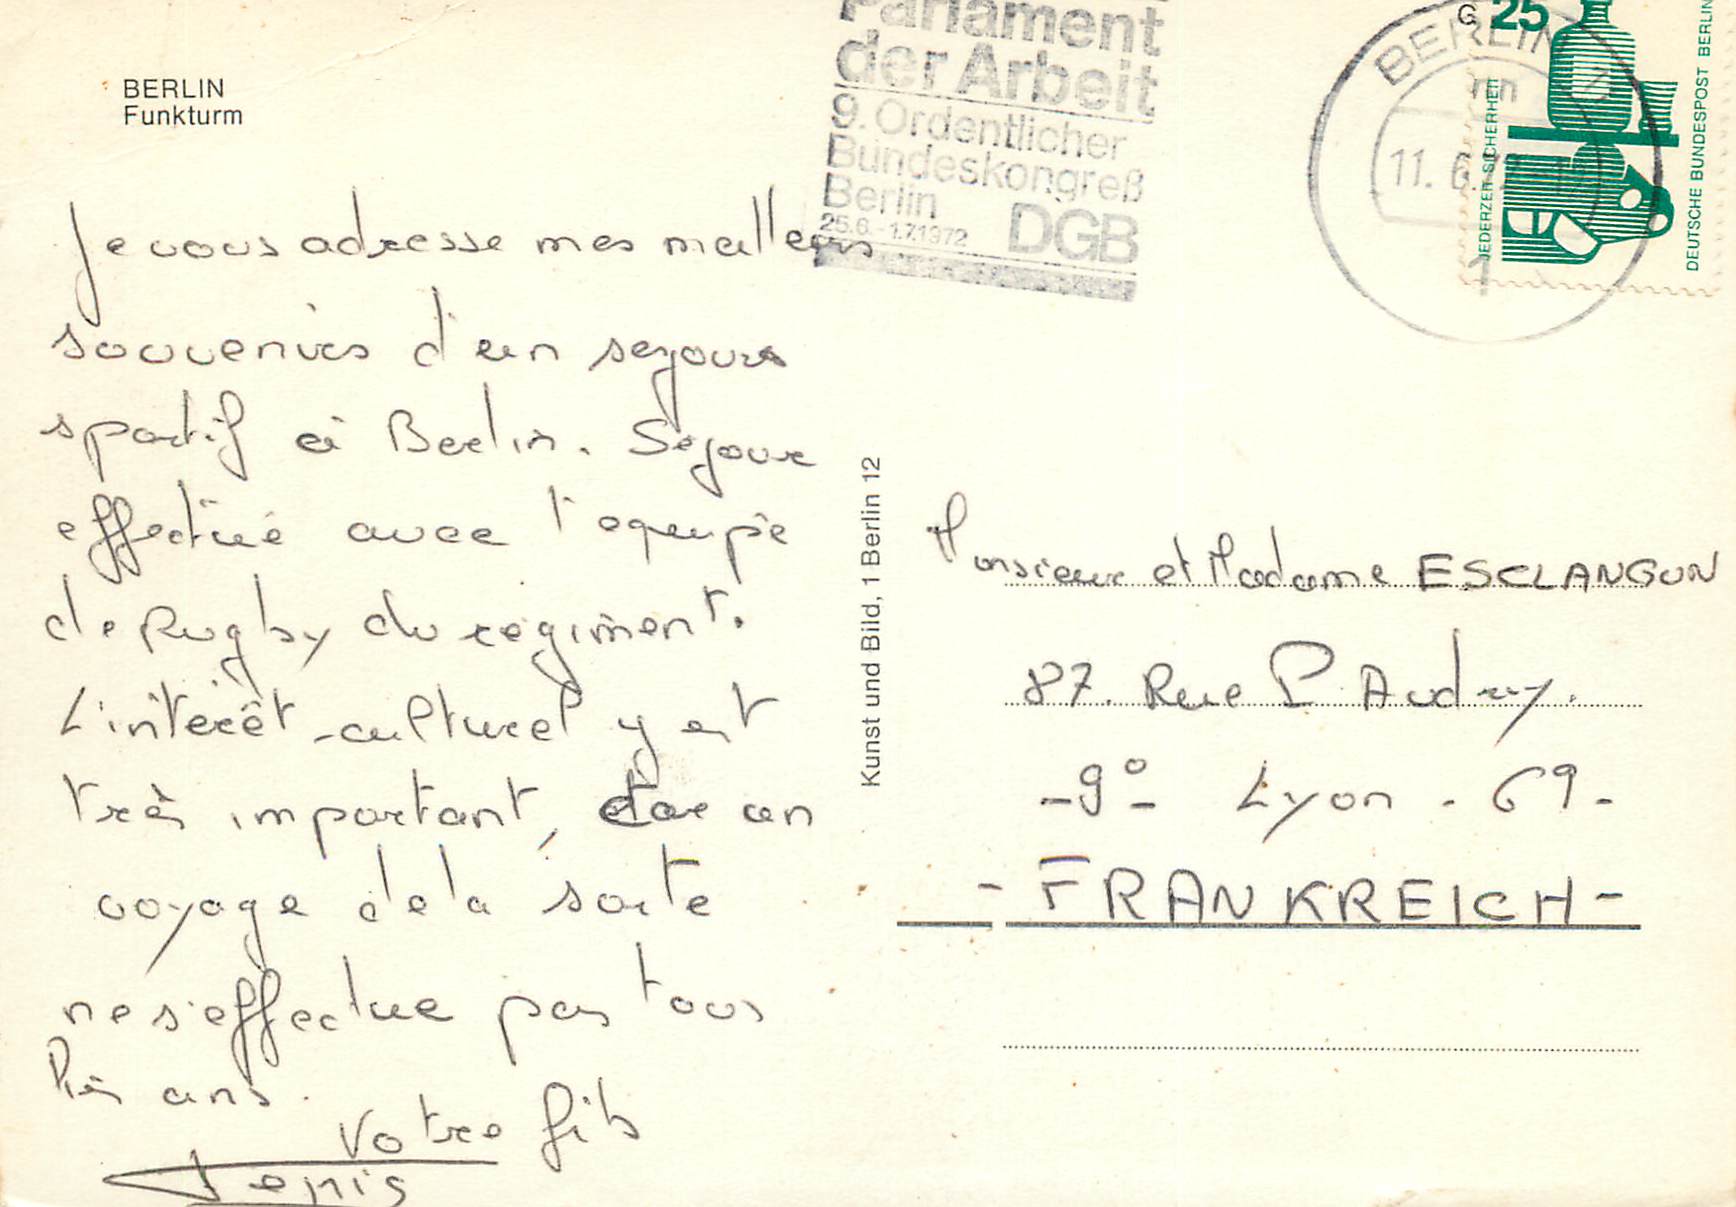 BERLIN
Funkturm
Je vous adresse mes meilleurs
souvenirs d'un sejours
sportif à Berlin. Sejour
effectué avec l'equipe
de Rugby du regiment.
L'intérêt culturel y est
très important, car un
voyage de la sorte
ne s'effectue pas tous
les ans.
Votre fils
Denis
Parlament
der Arbeit
9. Ordentlicher
Bundeskongreß
Berlin
25.6.-1.7.1972 DGB
BERLIN
11. 6. 72
1
G 25
JEDERZEIT SICHERHEIT
DEUTSCHE BUNDESPOST BERLIN
Kunst und Bild, 1 Berlin 12
Monsieur et Madame ESCLANGON
87. Rue P. Audry.
-9° Lyon - 69-
- FRANKREICH-